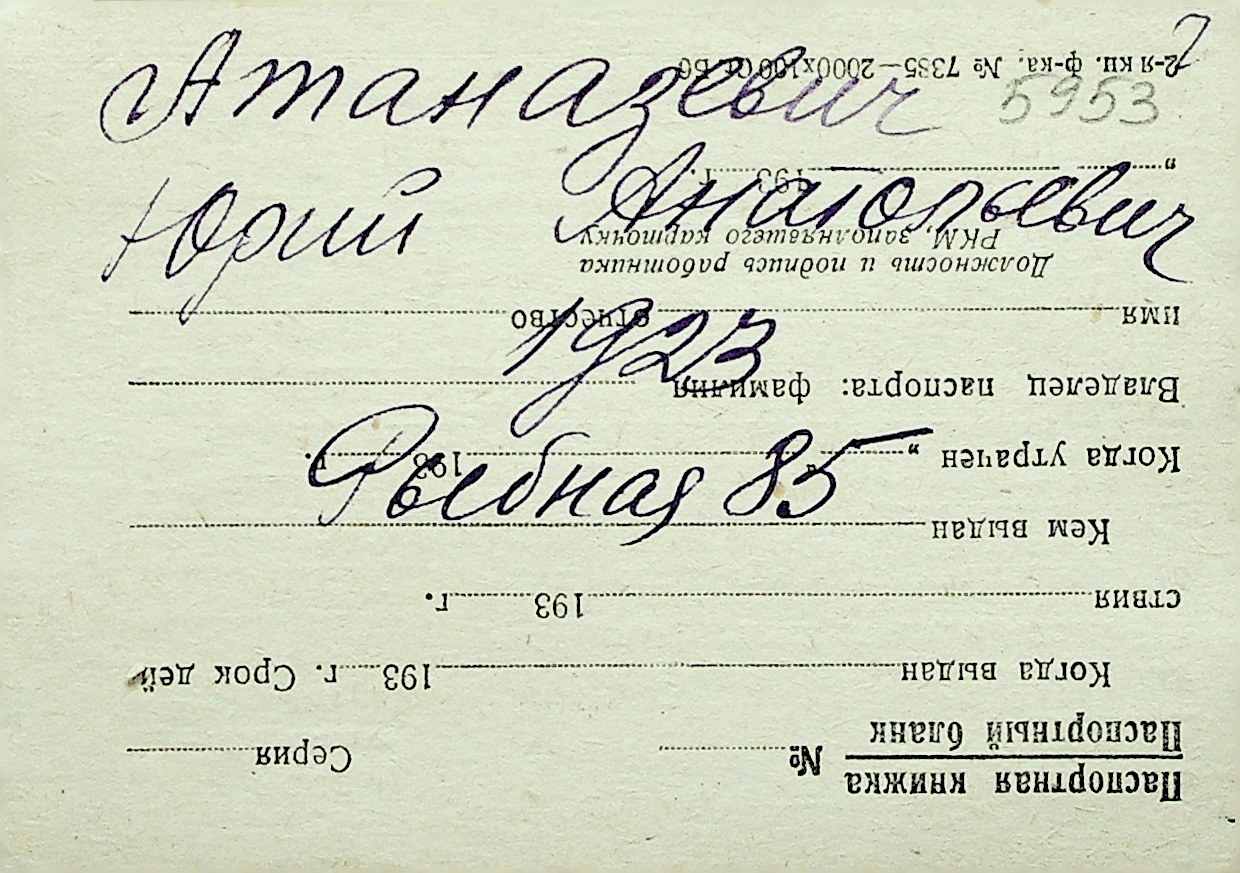 Атаназевич
5953
Юрий
1923
Рыбная 85
Паспортная книжка
Паспортный бланк
№ Серия
Когда выдан 193 г. Срок дей
ствия 193 г.
Кем выдан
Когда утрачен „ “ 193 г.
Владелец паспорта: фамилия
имя отчество
Должность и подпись работника
РКМ, заполнявшего карточку
„ “ 193 г.
2-я кн. ф-ка. № 7385—2000х100